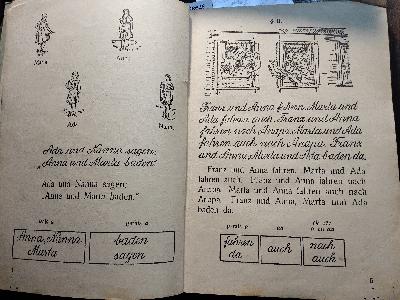 Ada
Ada und Nanna sagen:
„Anna und Marta baden“
Ada und Nanna sagen:
„Anna und Marta baden.“
Anna, Nanna
Marta
baden
sagen
§ 11.
Franz und Anna fahren. Marta und
Ada fahren auch. Franz und Anna
fahren nach Anapa. Marta und Ada
fahren auch nach Anapa. Franz
und Anna, Marta und Ada baden da.
Franz und Anna fahren. Marta und Ada
fahren auch. Franz und Anna fahren nach
Anapa. Marta und Ada fahren auch nach
Anapa. Franz und Anna, Marta und Ada
baden da.
fahren
da
auch
nach
auch